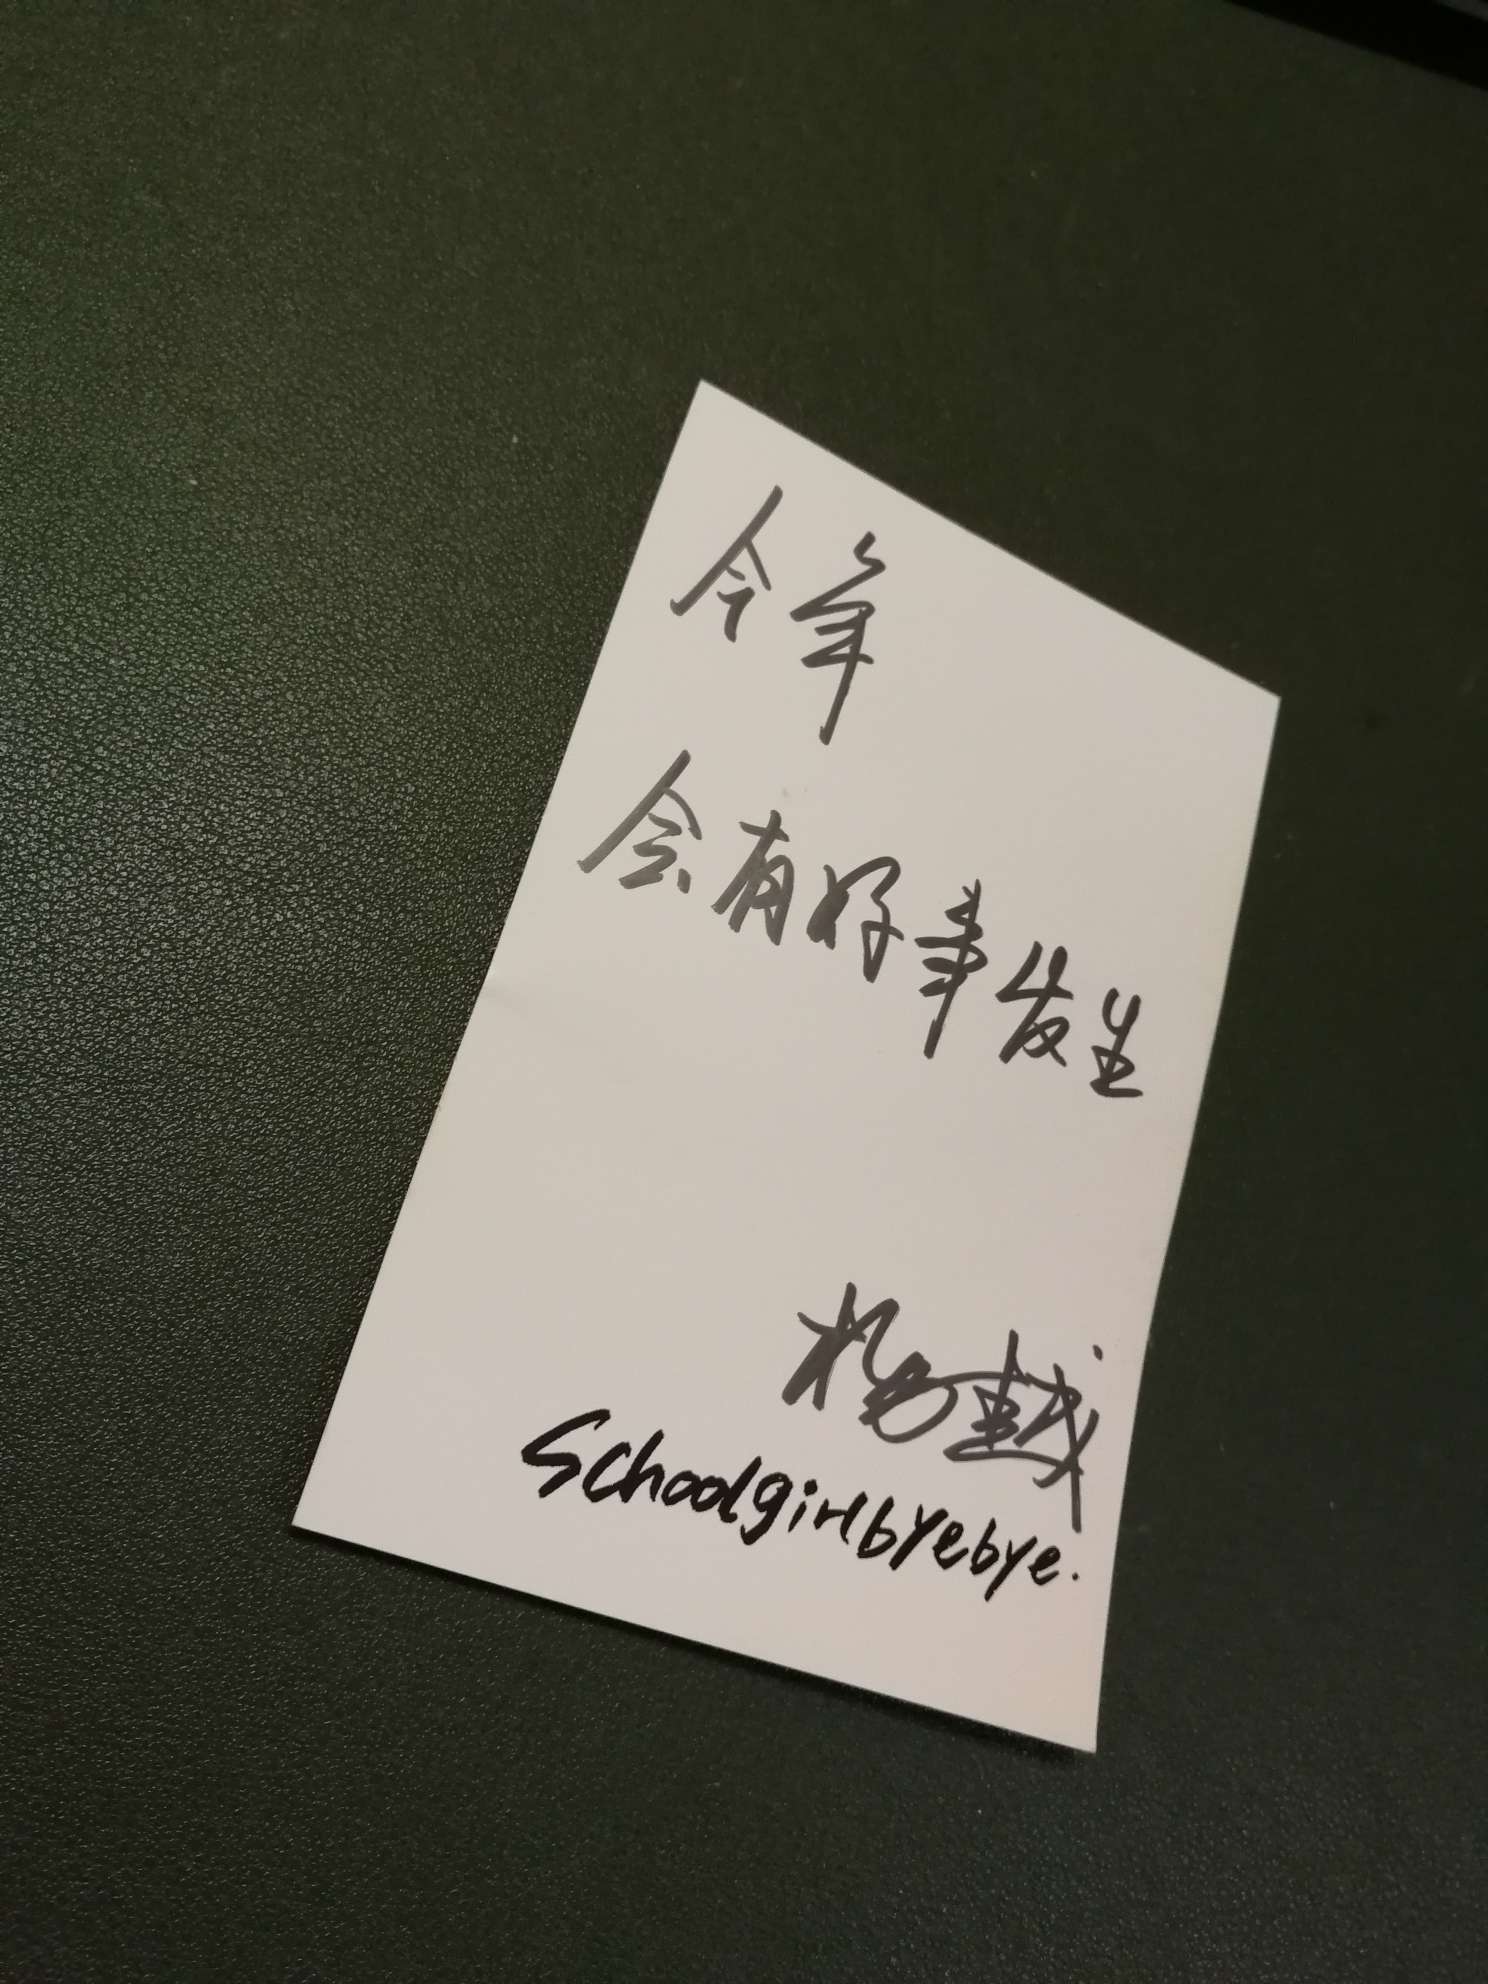 今年
会有好事发生
杨越
Schoolgirlbyebye.